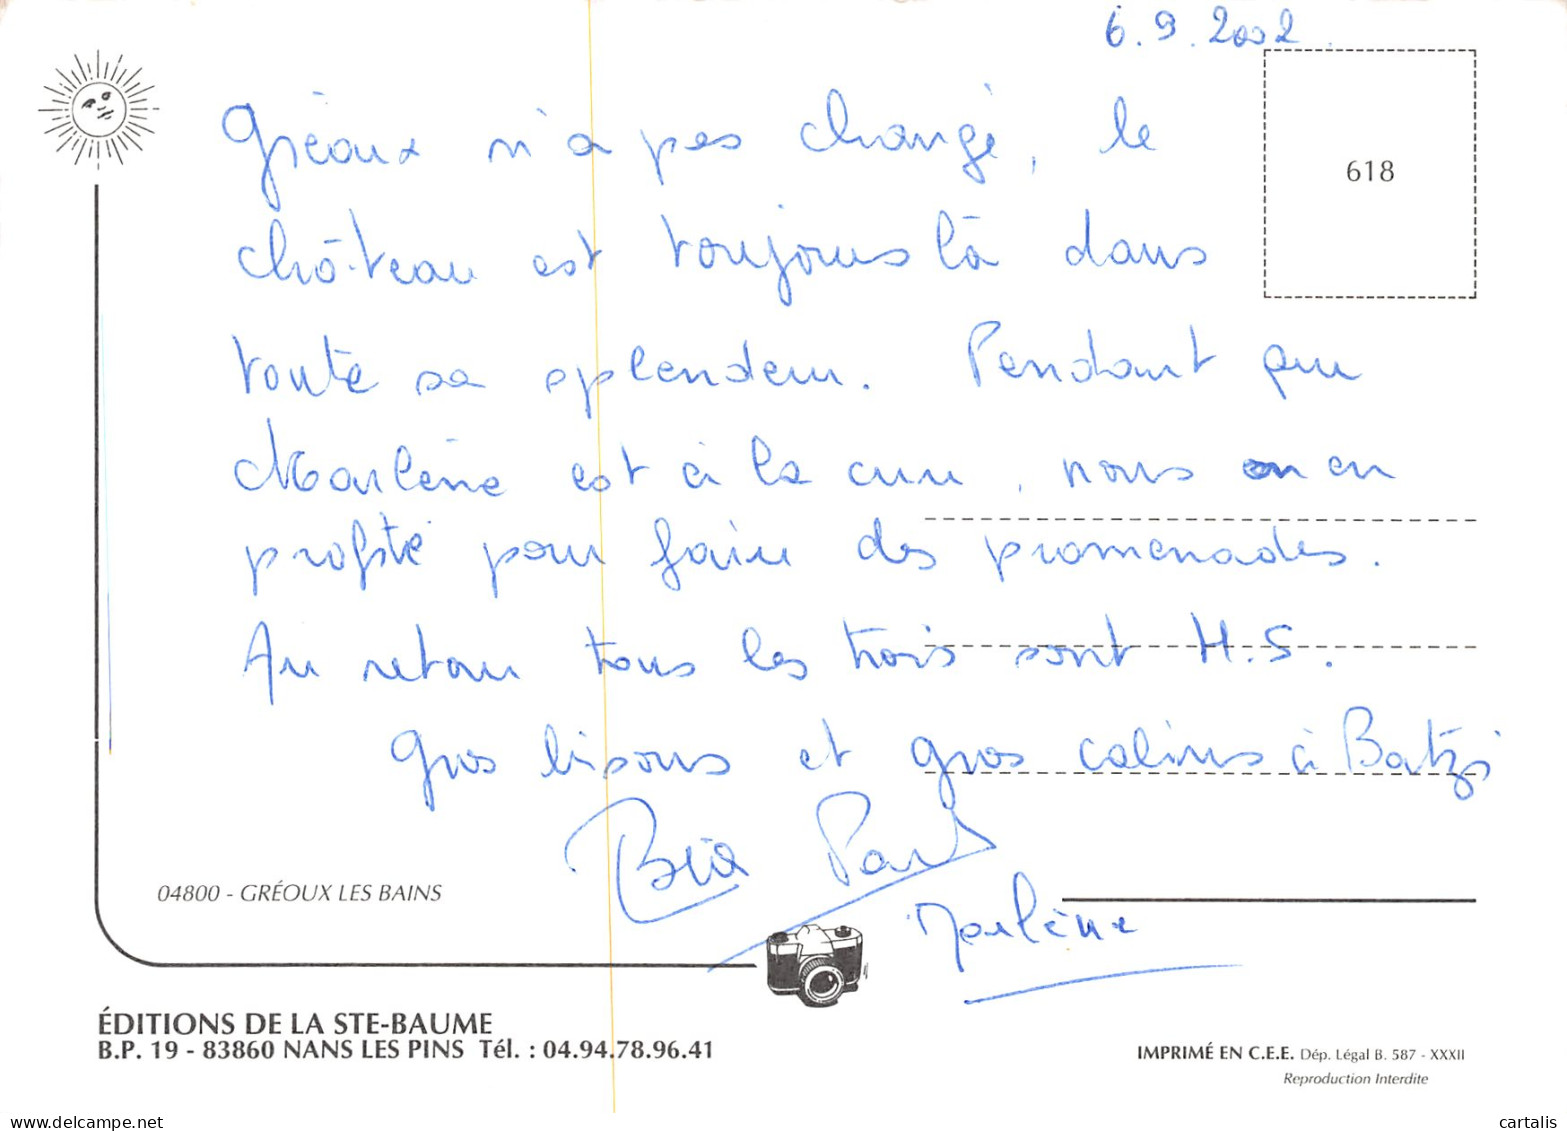 6.9.2002.
Gréoux n'a pas changé, le
château est toujours là dans
toute sa splendeur. Pendant que
Marlène est à la cure, nous on en
profite pour faire des promenades.
Au retour tous les trois sont H.S.
Gros bisous et gros calins à Batzi
Paul
Marlène
618
04800 - GRÉOUX LES BAINS
ÉDITIONS DE LA STE-BAUME
B.P. 19 - 83860 NANS LES PINS Tél. : 04.94.78.96.41
IMPRIMÉ EN C.E.E. Dép. Légal B. 587 - XXXII
Reproduction Interdite
delcampe.net
cartalis